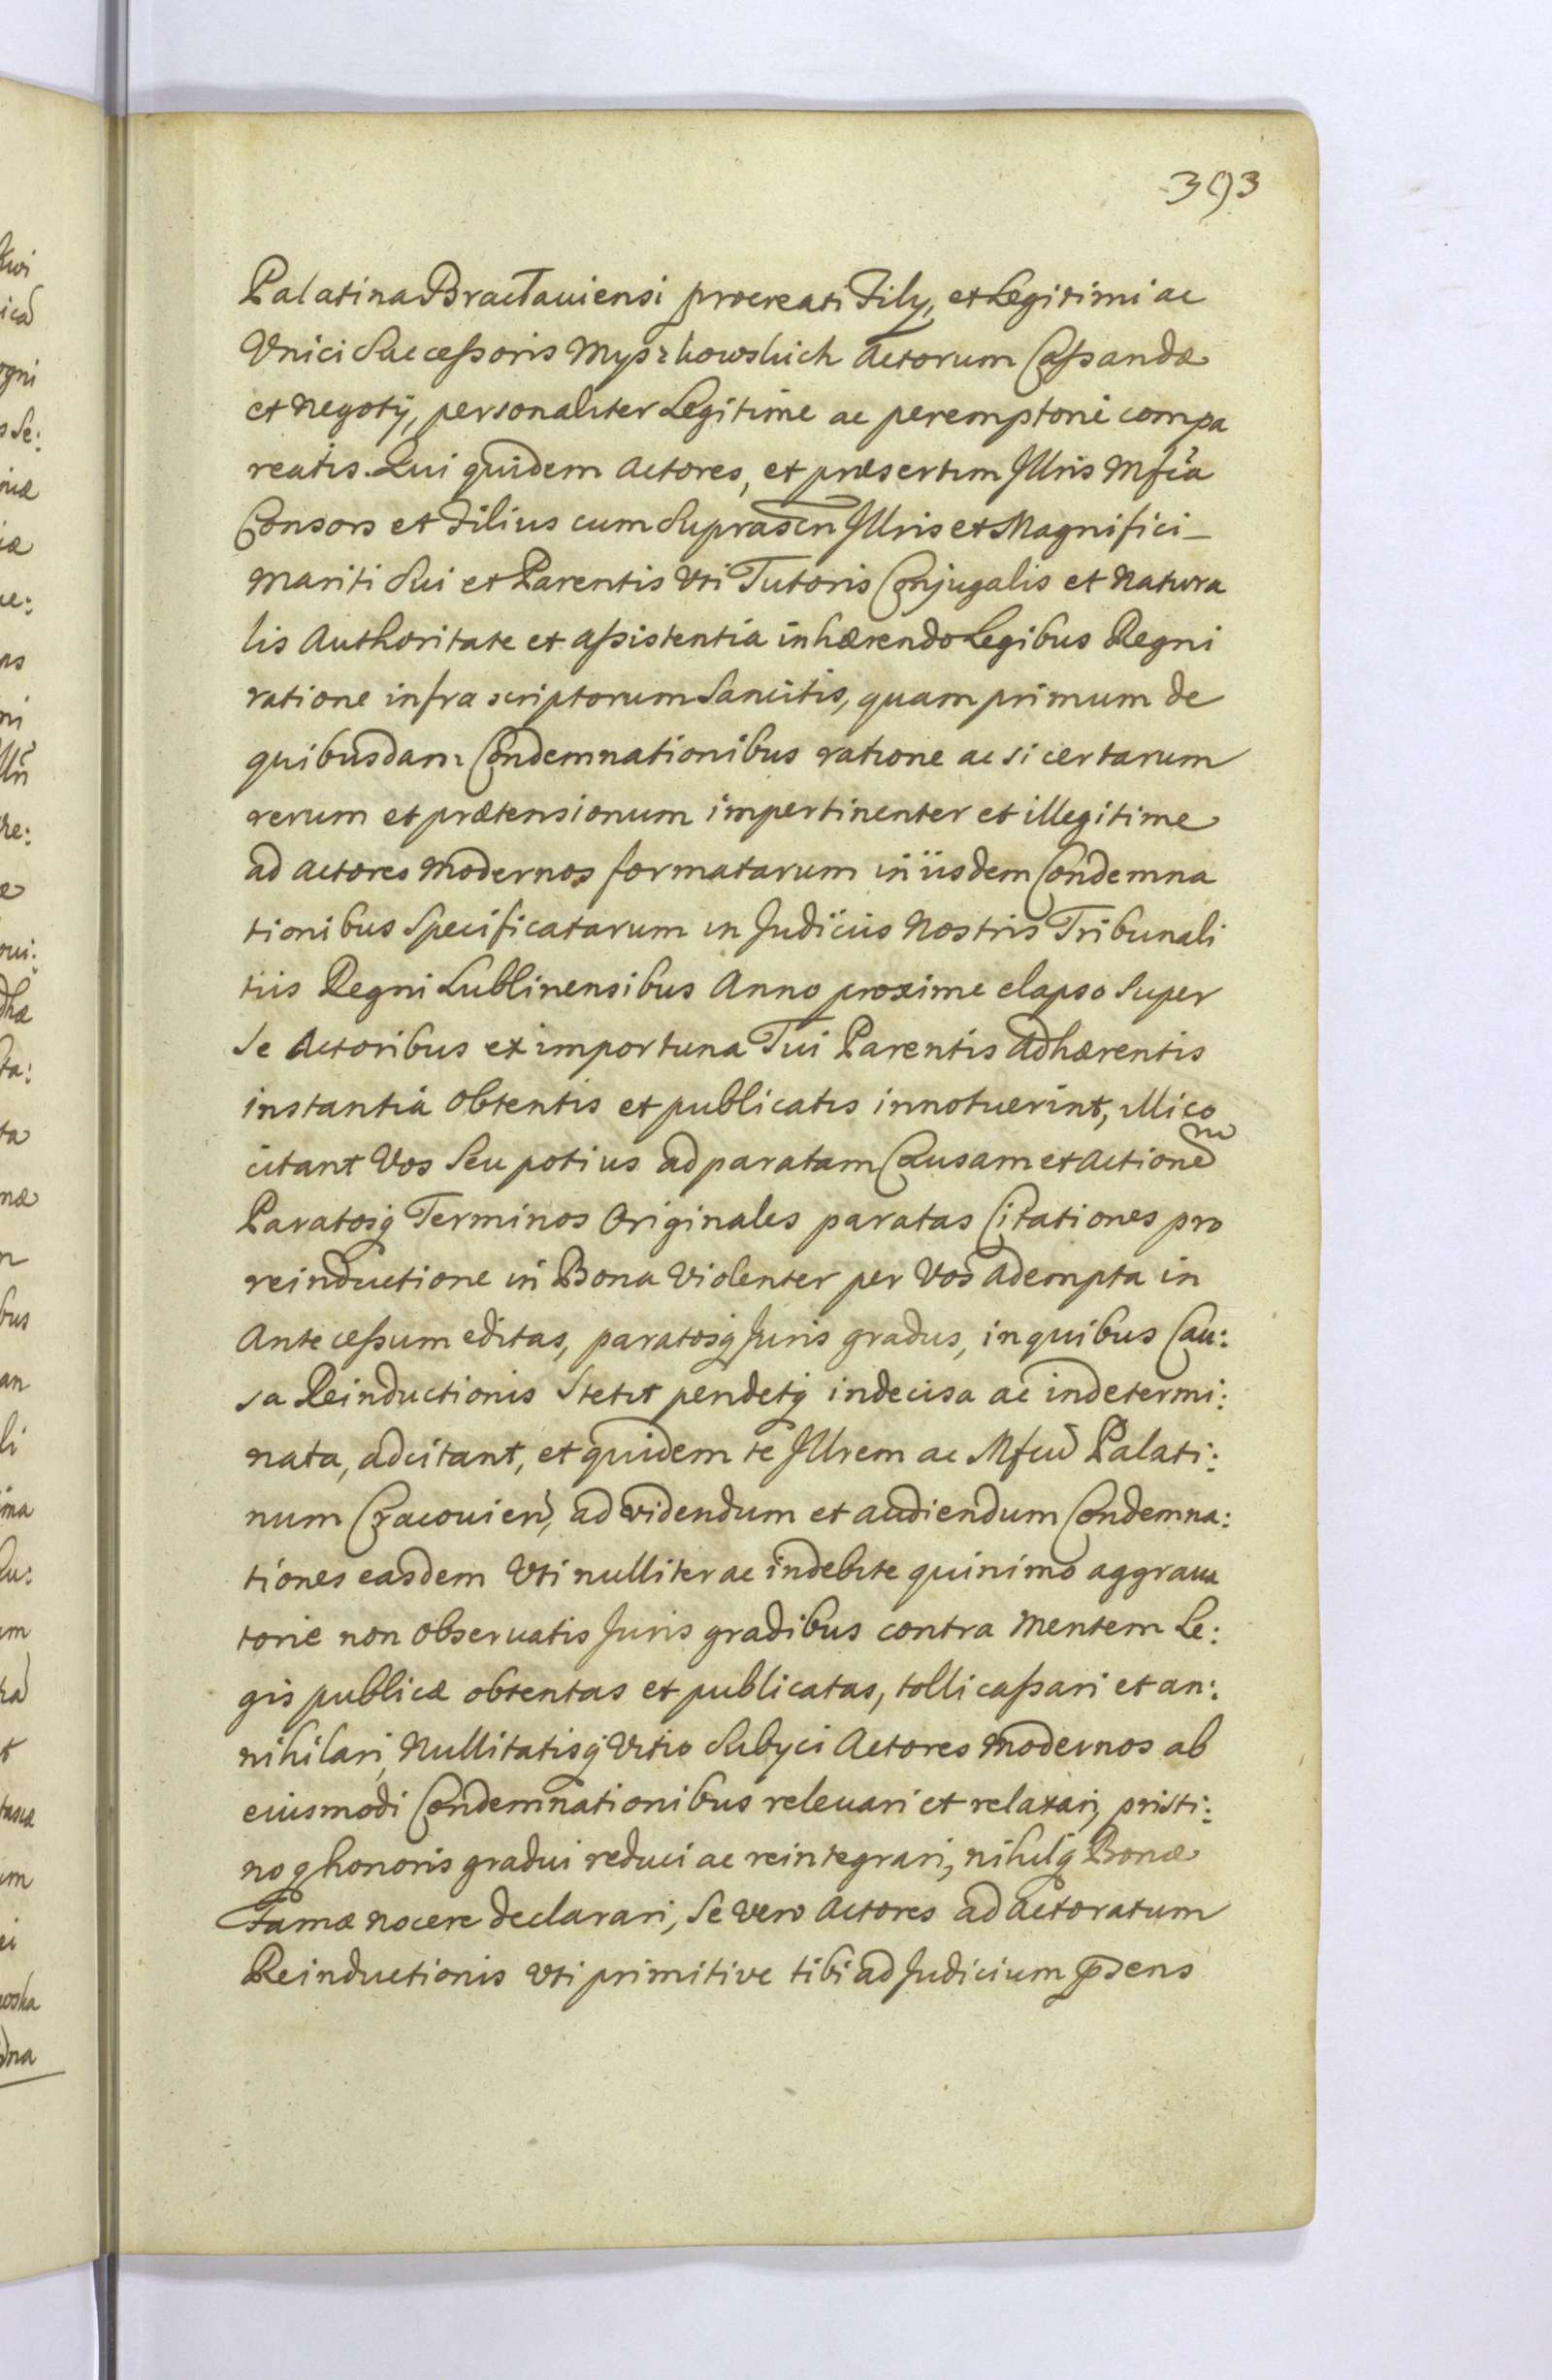 393
Palatina Bractauiensi procreati Filÿ, et Legitimi ac
Vnici Succeßoris Myszkowskich Actorum Caßandæ
et Negotÿ, personaliter Legitime ac peremptorie compa
reatis. Qui quidem Actores, et præsertim Jllris Mfca
Consors et Filius cum Suprascri Jllris et Magnifici_
Mariti Sui et Parentis Vti Tutoris Conjugalis et Natura
lis Authoritate et aßistentia inhærendo Legibus Regni
ratione infra scriptorum Sancitis, quam primum de
quibusdam Condemnationibus ratione ac si certarum
rerum et prætensionum impertinenter et illegitime
ad actores Modernos formatarum in iisdem Condemna
tionibus Specificatarum in Judiciis Nostris Tribunali
tiis Regni Lublinensibus Anno proxime elapso Super
Se Actoribus ex importuna Tui Parentis Adhærentis
instantia obtentis et publicatis innotuerint, illico
citant Vos Seu potius ad paratam Causam et Actionem
Paratosq Terminos Originales paratas Citationes pro
reinductione in Bona Violenter per Vos adempta in
Anteceßum editas, paratosq Juris gradus, in quibus Cau:
sa Reinductionis Stetit pendetq indecisa ac indetermi:
nata, adcitant, et quidem te Jllrem ac Mfcu Palati:
num Cracouien, ad videndum et audiendum Condemna:
tiones easdem Vti nulliter ac indebite quinimo aggraua
torie non obseruatis Juris gradibus contra Mentem Le:
gis publicæ obtentas et publicatas, tolli caßari et an:
nihilari, Nullitatisq Vitio Subÿci Actores Modernos ab
eiusmodi Condemnationibus releuari et relaxari, pristi:
noq honoris gradui reduci ac reintegrari, nihilq Bonæ
Famæ nocere declarari, Se Vero Actores ad Actoratum
Reinductionis Vti primitive tibi ad Judicium psens